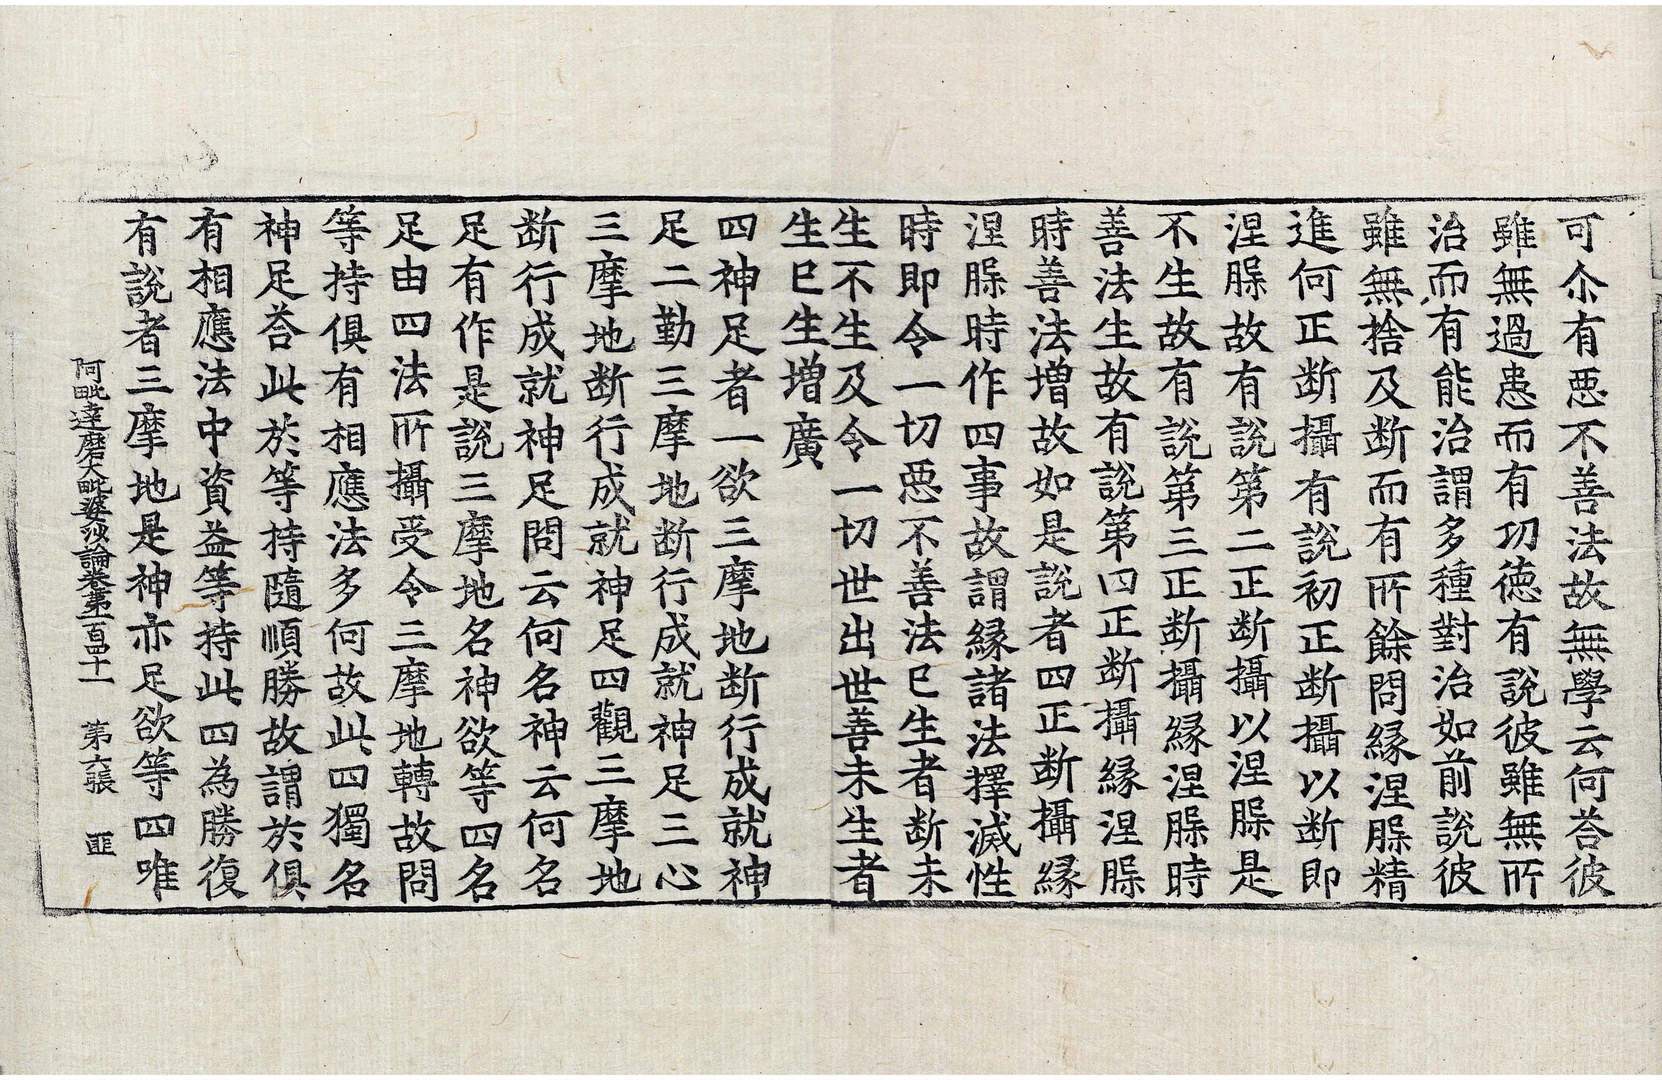 可尒有惡不善法故無學云何荅彼
雖無過患而有功徳有說彼雖無所
治而有能治謂多種對治如前說彼
雖無捨及断而有所餘問緣涅槃精
進何正断攝有說初正断攝以断即
涅槃故有說第二正断攝以涅槃是
不生故有說第三正断攝緣涅槃時
善法生故有說第四正断攝緣涅槃
時善法增故如是說者四正断攝緣
涅槃時作四事故謂緣諸法擇滅性
時即令一切惡不善法已生者断未
生不生及令一切世出世善未生者
生已生增廣
四神足者一欲三摩地断行成就神
足二勤三摩地断行成就神足三心
三摩地断行成就神足四觀三摩地
断行成就神足問云何名神云何名
足有作是說三摩地名神欲等四名
足由四法所攝受令三摩地轉故問
等持俱有相應法多何故此四獨名
神足荅此於等持隨順勝故謂於俱
有相應法中資益等持此四為勝復
有說者三摩地是神亦足欲等四唯
阿毗達磨大毗婆沙論卷第一百四十一 第六張 匪